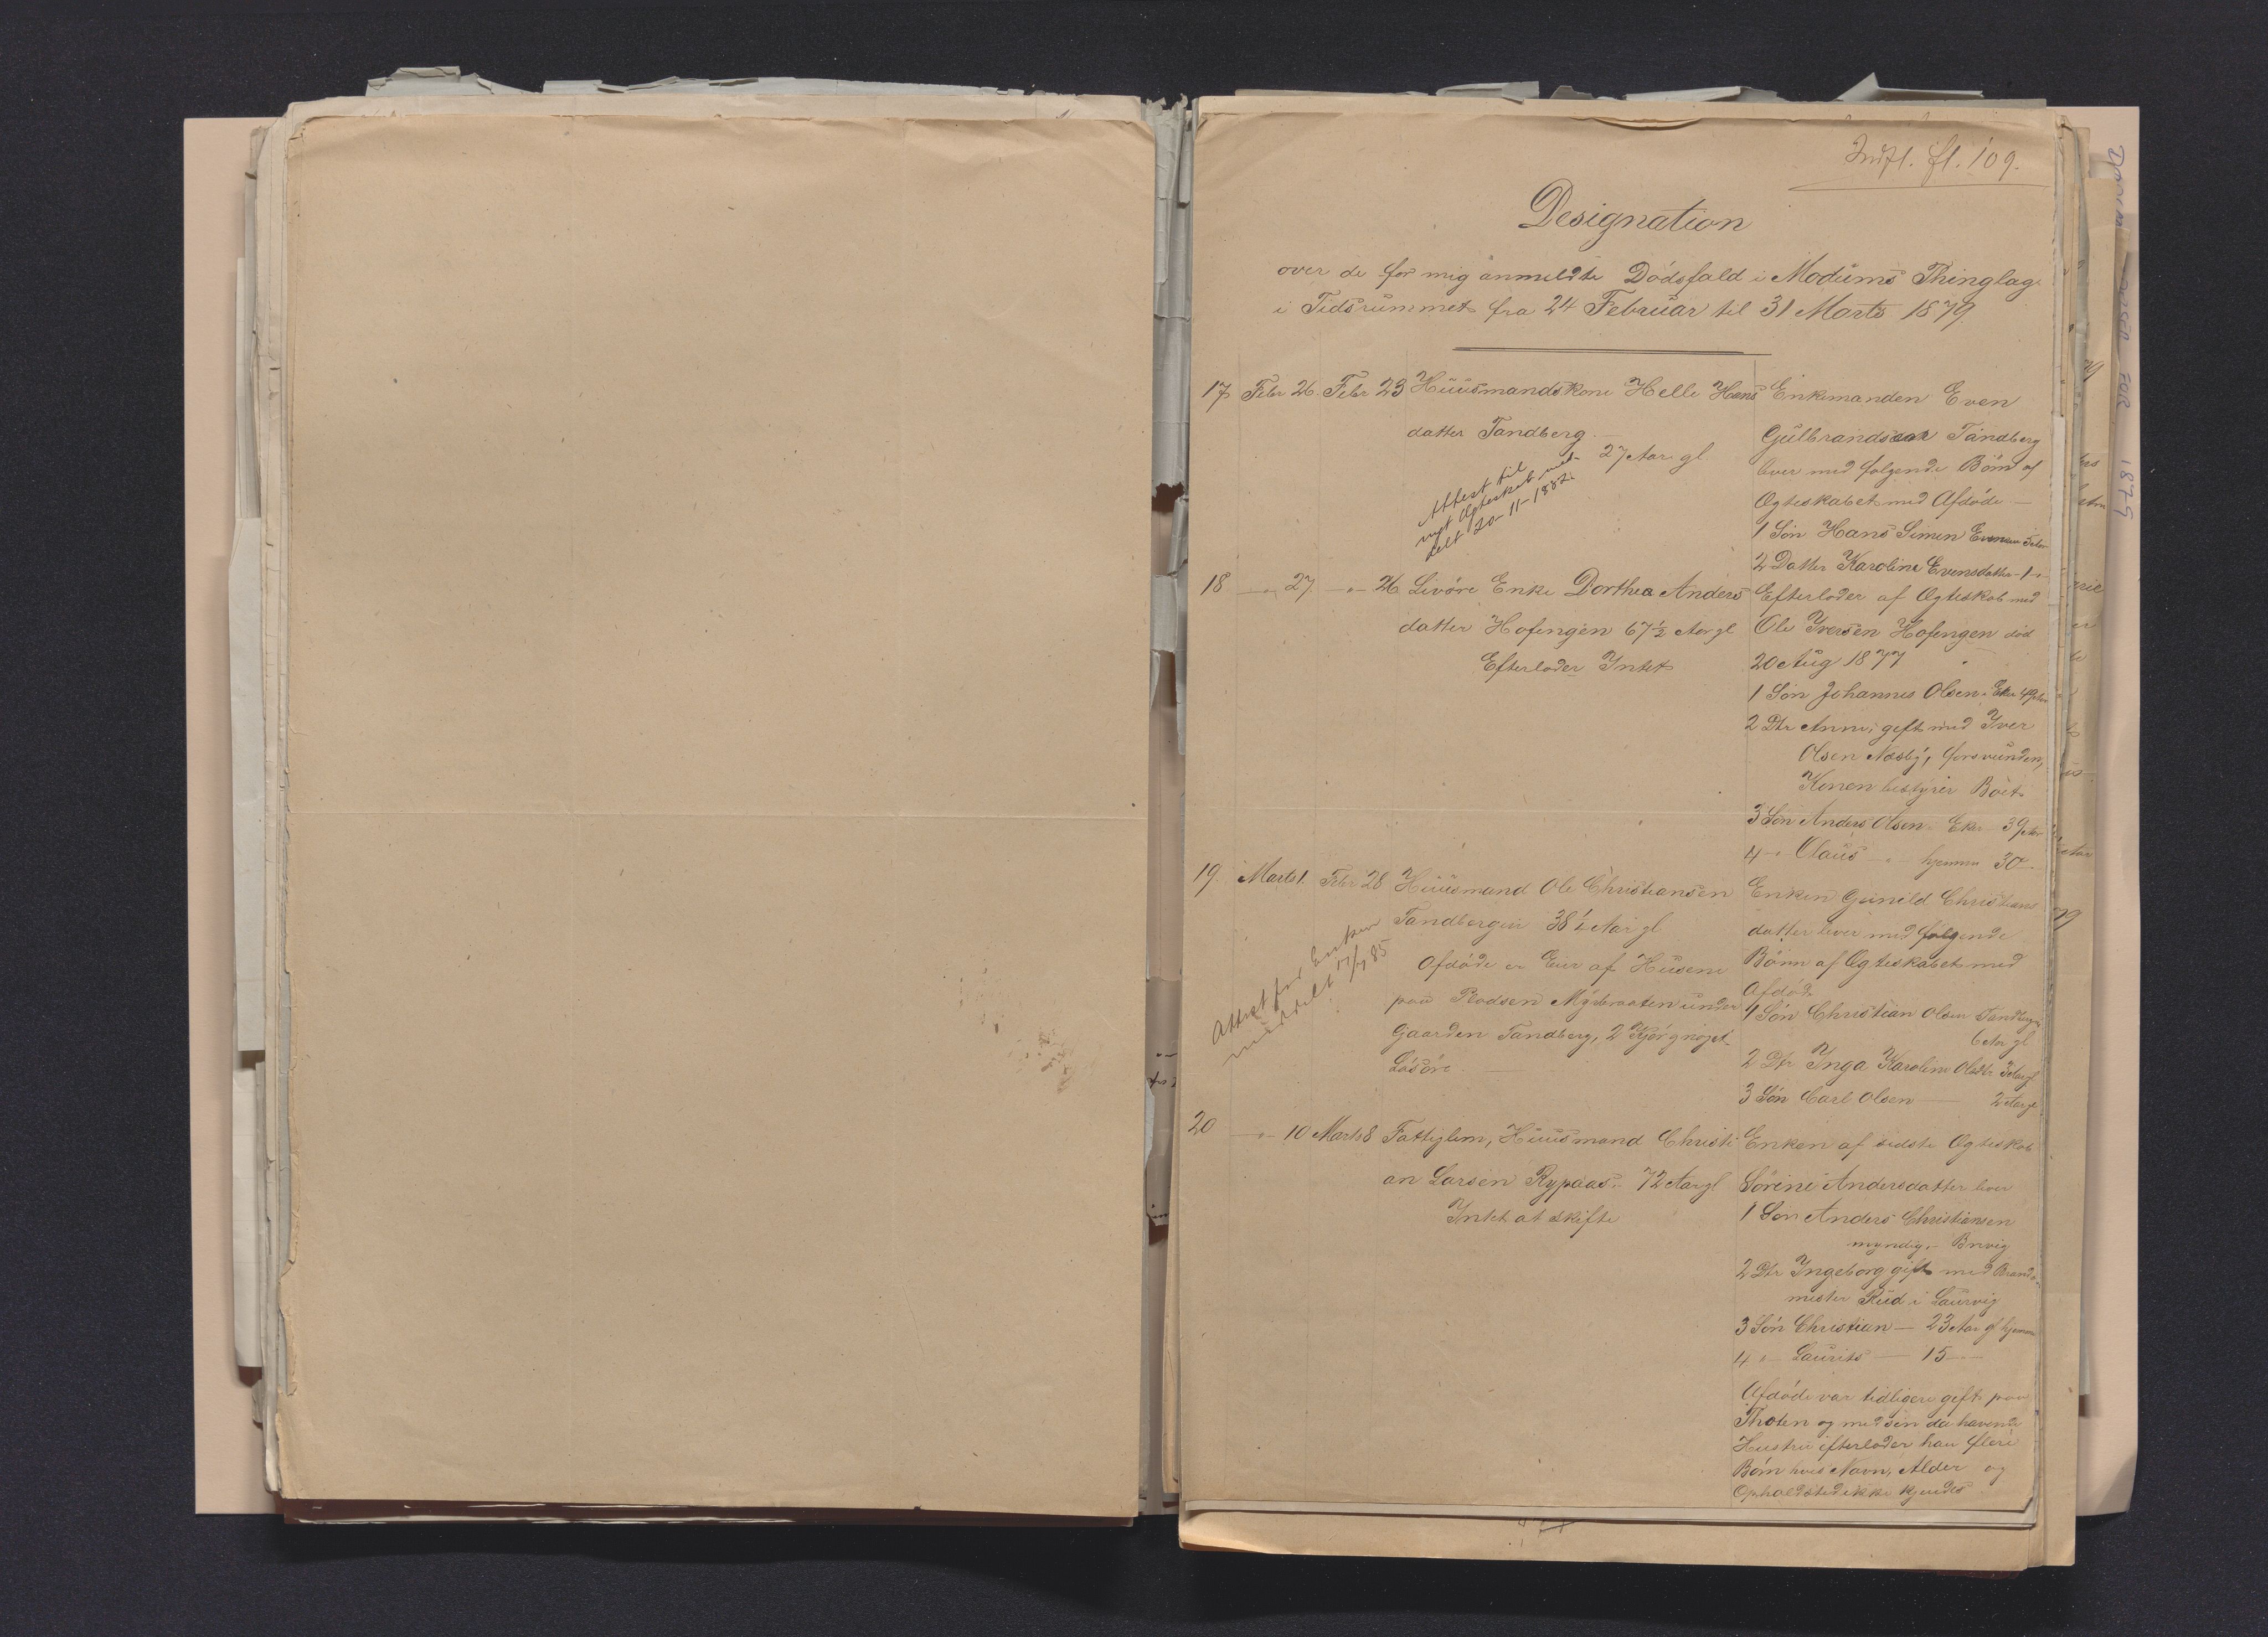 Indfl. fl. 109.
Designation
over de for mig anmeldte Dødsfald i Modums Thinglag
i Tidsrummet fra 24 Februar til 31 Marts 1879
17 Febr 26 Febr 23 Huusmandskone Helle Hans
datter Tandberg.
27 Aar gl
Attest til
nyt Ægteskab med-
delt 20-11-1882.
Enkemanden Even
Gulbrandsen Tandberg
lever med følgende Børn af
Ægteskabet med Afdøde
1 Søn Hans Simen Evensen 5 Aar
2 Datter Karoline Evensdatter 1 "
18 " 27 " 26 Livøre Enke Dorthea Anders
datter Hofengen 67½ Aar gl
Efterlader Intet
Efterlader af Ægteskab med
Ole Iversen Hofengen død
20 Aug 1877
1 Søn Johannes Olsen Eker 49 Aar
2 Dtr Anne, gift med Iver
Olsen Næsby, forsvunden,
Konen bestyrer Boet
3 Søn Anders Olsen Eker 39 Aar
4 " Claus " hjemme 30
19. Marts 1. Febr 28 Huusmand Ole Christiansen
Tandbergeie 38½ Aar gl
Afdøde er Eier af Husene
paa Pladsen under
Gaarden Tandberg, 2 Kjør g nøjet
Løsøre.
Attest for Enken
meddelt 85
Enken Gunild Christians
datter lever med følgende
Børn af Ægteskabet med
Afdøde
1 Søn Christian Olsen Tandberg
6 Aar gl
2 Dtr Inga Karoline Olsdtr 3 Aar gl
3 Søn Carl Olsen 2 Aar gl
20 " 10 Marts 8 Fattiglem, Huusmand Christi
an Larsen Rypaas. 72 Aar gl
Intet at skifte
Enken af sidste Ægteskab
Sørine Andersdatter lever
1 Søn Anders Christiansen
myndig, Brevig
2 Dtr Ingeborg gift med Brand-
mester Rud i Laurvig
3 Søn Christian 23 Aar gl hjemme
4 " Laurits 15
Afdøde var tidligere gift paa
Thoten og med sin da havende
Hustru efterlader han flere
Børn hvis Navn, Alder og
Opholdsted ikke kjendes
1879